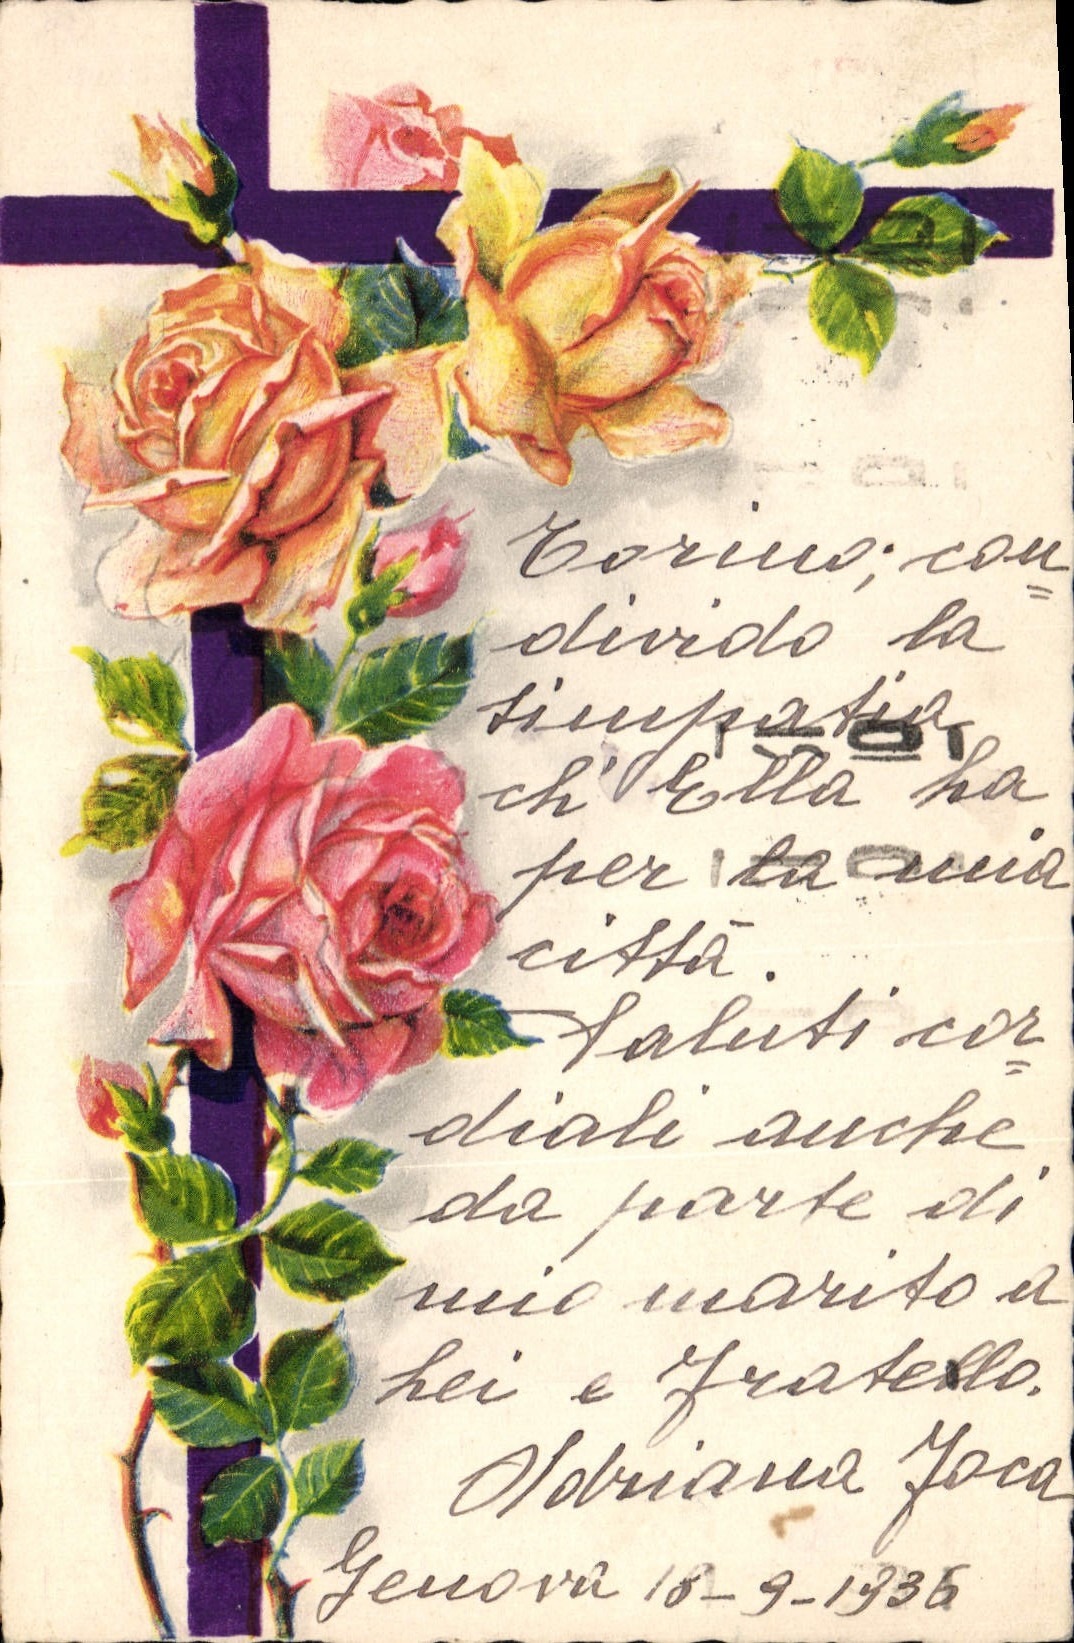 Torino; con=
divido la
simpatia
ch' Ella ha
per la mia
città.
Saluti cor=
diali anche
da parte di
mio marito a
Lei e Fratello.
Adriana
Genova 18-9-1936